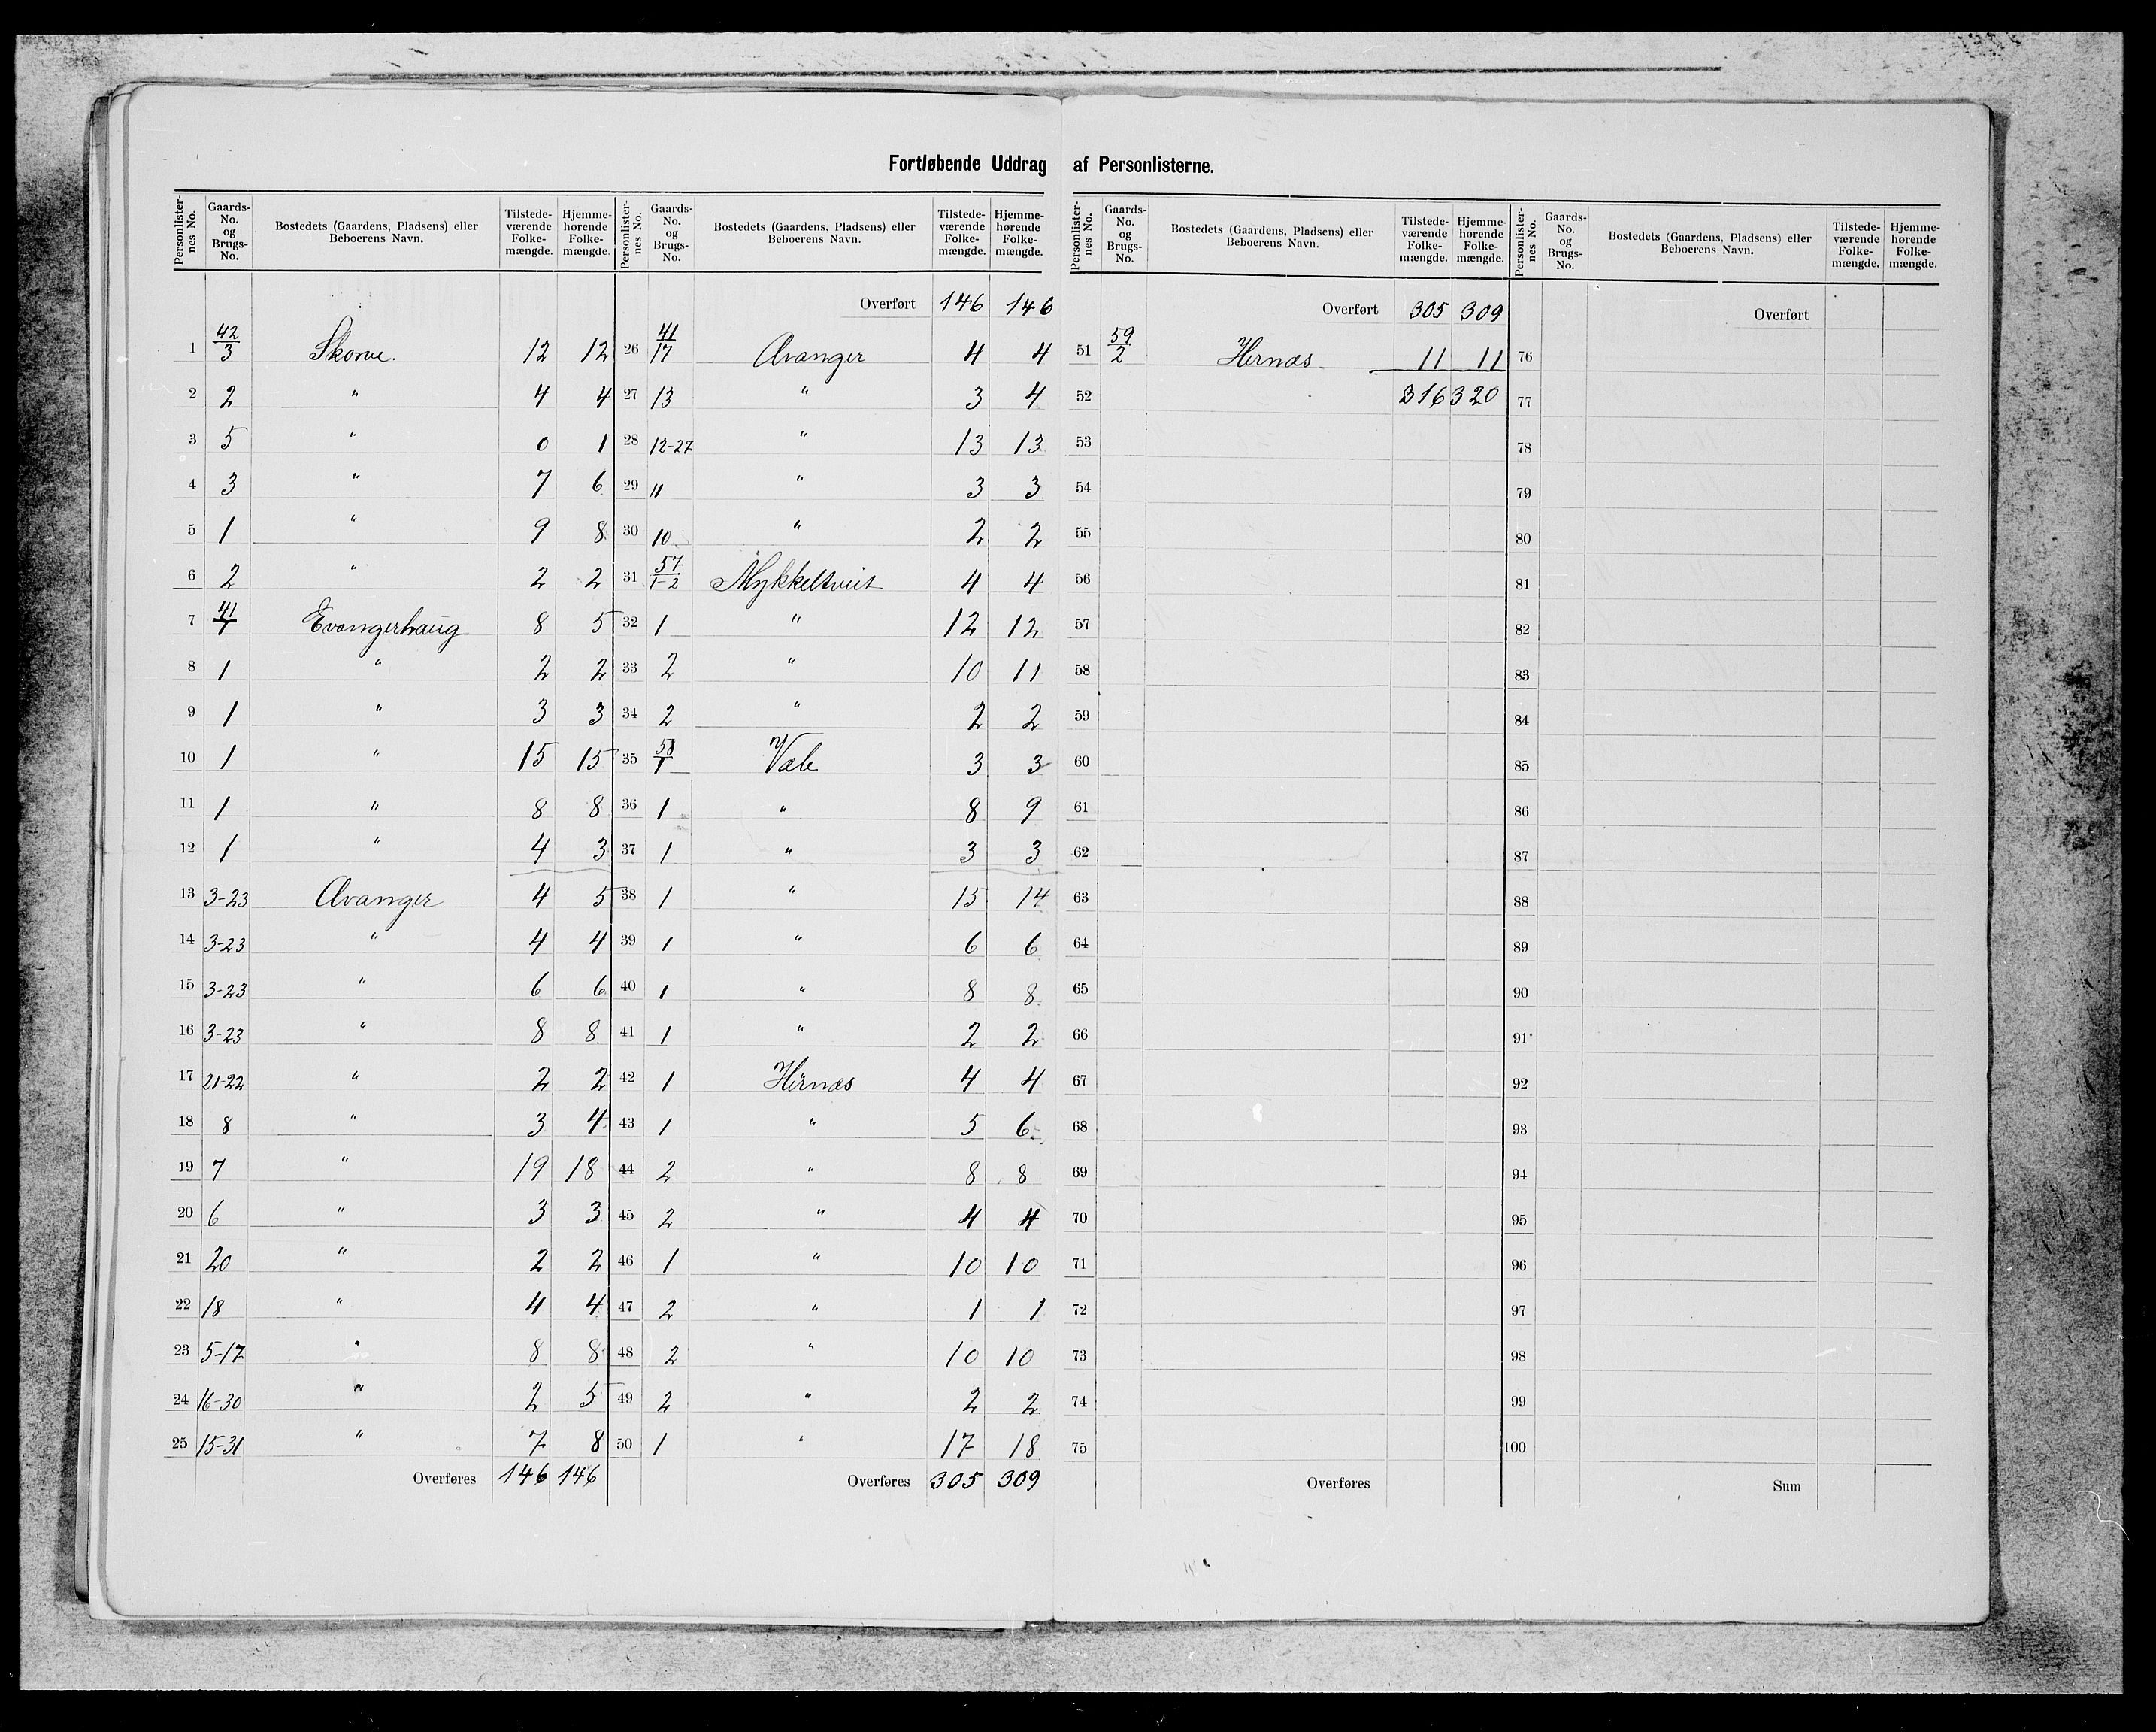 Fortløbende Uddrag af Personlisterne.
Personlisternes No. | Gaards-No. og Brugs-No. | Bostedets (Gaardens, Pladsens) eller Beboerens Navn. | Tilstedeværende Folkemængde. | Hjemmehørende Folkemængde.
1 42/3 Skorve. 12 12
2 2 " 4 4
3 5 " 0 1
4 3 " 7 6
5 1 " 9 8
6 2 " 2 2
7 41/1 Evangerhaug 8 5
8 1 " 2 2
9 1 " 3 3
10 1 " 15 15
11 1 " 8 8
12 1 " 4 3
13 3-23 Avanger 4 5
14 3-23 " 4 4
15 3-23 " 6 6
16 3-23 " 8 8
17 21-22 " 2 2
18 8 " 3 4
19 7 " 19 18
20 6 " 3 3
21 20 " 2 2
22 18 " 4 4
23 5-17 " 8 8
24 16-30 " 2 5
25 15-31 " 7 8
Overføres 146 146
Personlisternes No. | Gaards-No. og Brugs-No. | Bostedets (Gaardens, Pladsens) eller Beboerens Navn. | Tilstedeværende Folkemængde. | Hjemmehørende Folkemængde.
Overført 146 146
26 41/17 Avanger 4 4
27 13 " 3 4
28 12-27 " 13 13
29 11 " 3 3
30 10 " 2 2
31 57/1-2 Mykkeltveit 4 4
32 1 " 12 12
33 2 " 10 11
34 2 " 2 2
35 58/1 Væle 3 3
36 1 " 8 9
37 1 " 3 3
38 1 " 15 14
39 1 " 6 6
40 1 " 8 8
41 1 " 2 2
42 1 Hernæs 4 4
43 1 " 5 6
44 2 " 8 8
45 2 " 4 4
46 1 " 10 10
47 2 " 1 1
48 2 " 10 10
49 2 " 2 2
50 1 " 17 18
Overføres 305 309
Personlisternes No. | Gaards-No. og Brugs-No. | Bostedets (Gaardens, Pladsens) eller Beboerens Navn. | Tilstedeværende Folkemængde. | Hjemmehørende Folkemængde.
Overført 305 309
51 59/2 Hernæs 11 11
52 316 320
53
54
55
56
57
58
59
60
61
62
63
64
65
66
67
68
69
70
71
72
73
74
75
Overføres
Personlisternes No. | Gaards-No. og Brugs-No. | Bostedets (Gaardens, Pladsens) eller Beboerens Navn. | Tilstedeværende Folkemængde. | Hjemmehørende Folkemængde.
Overført
76
77
78
79
80
81
82
83
84
85
86
87
88
89
90
91
92
93
94
95
96
97
98
99
100
Sum